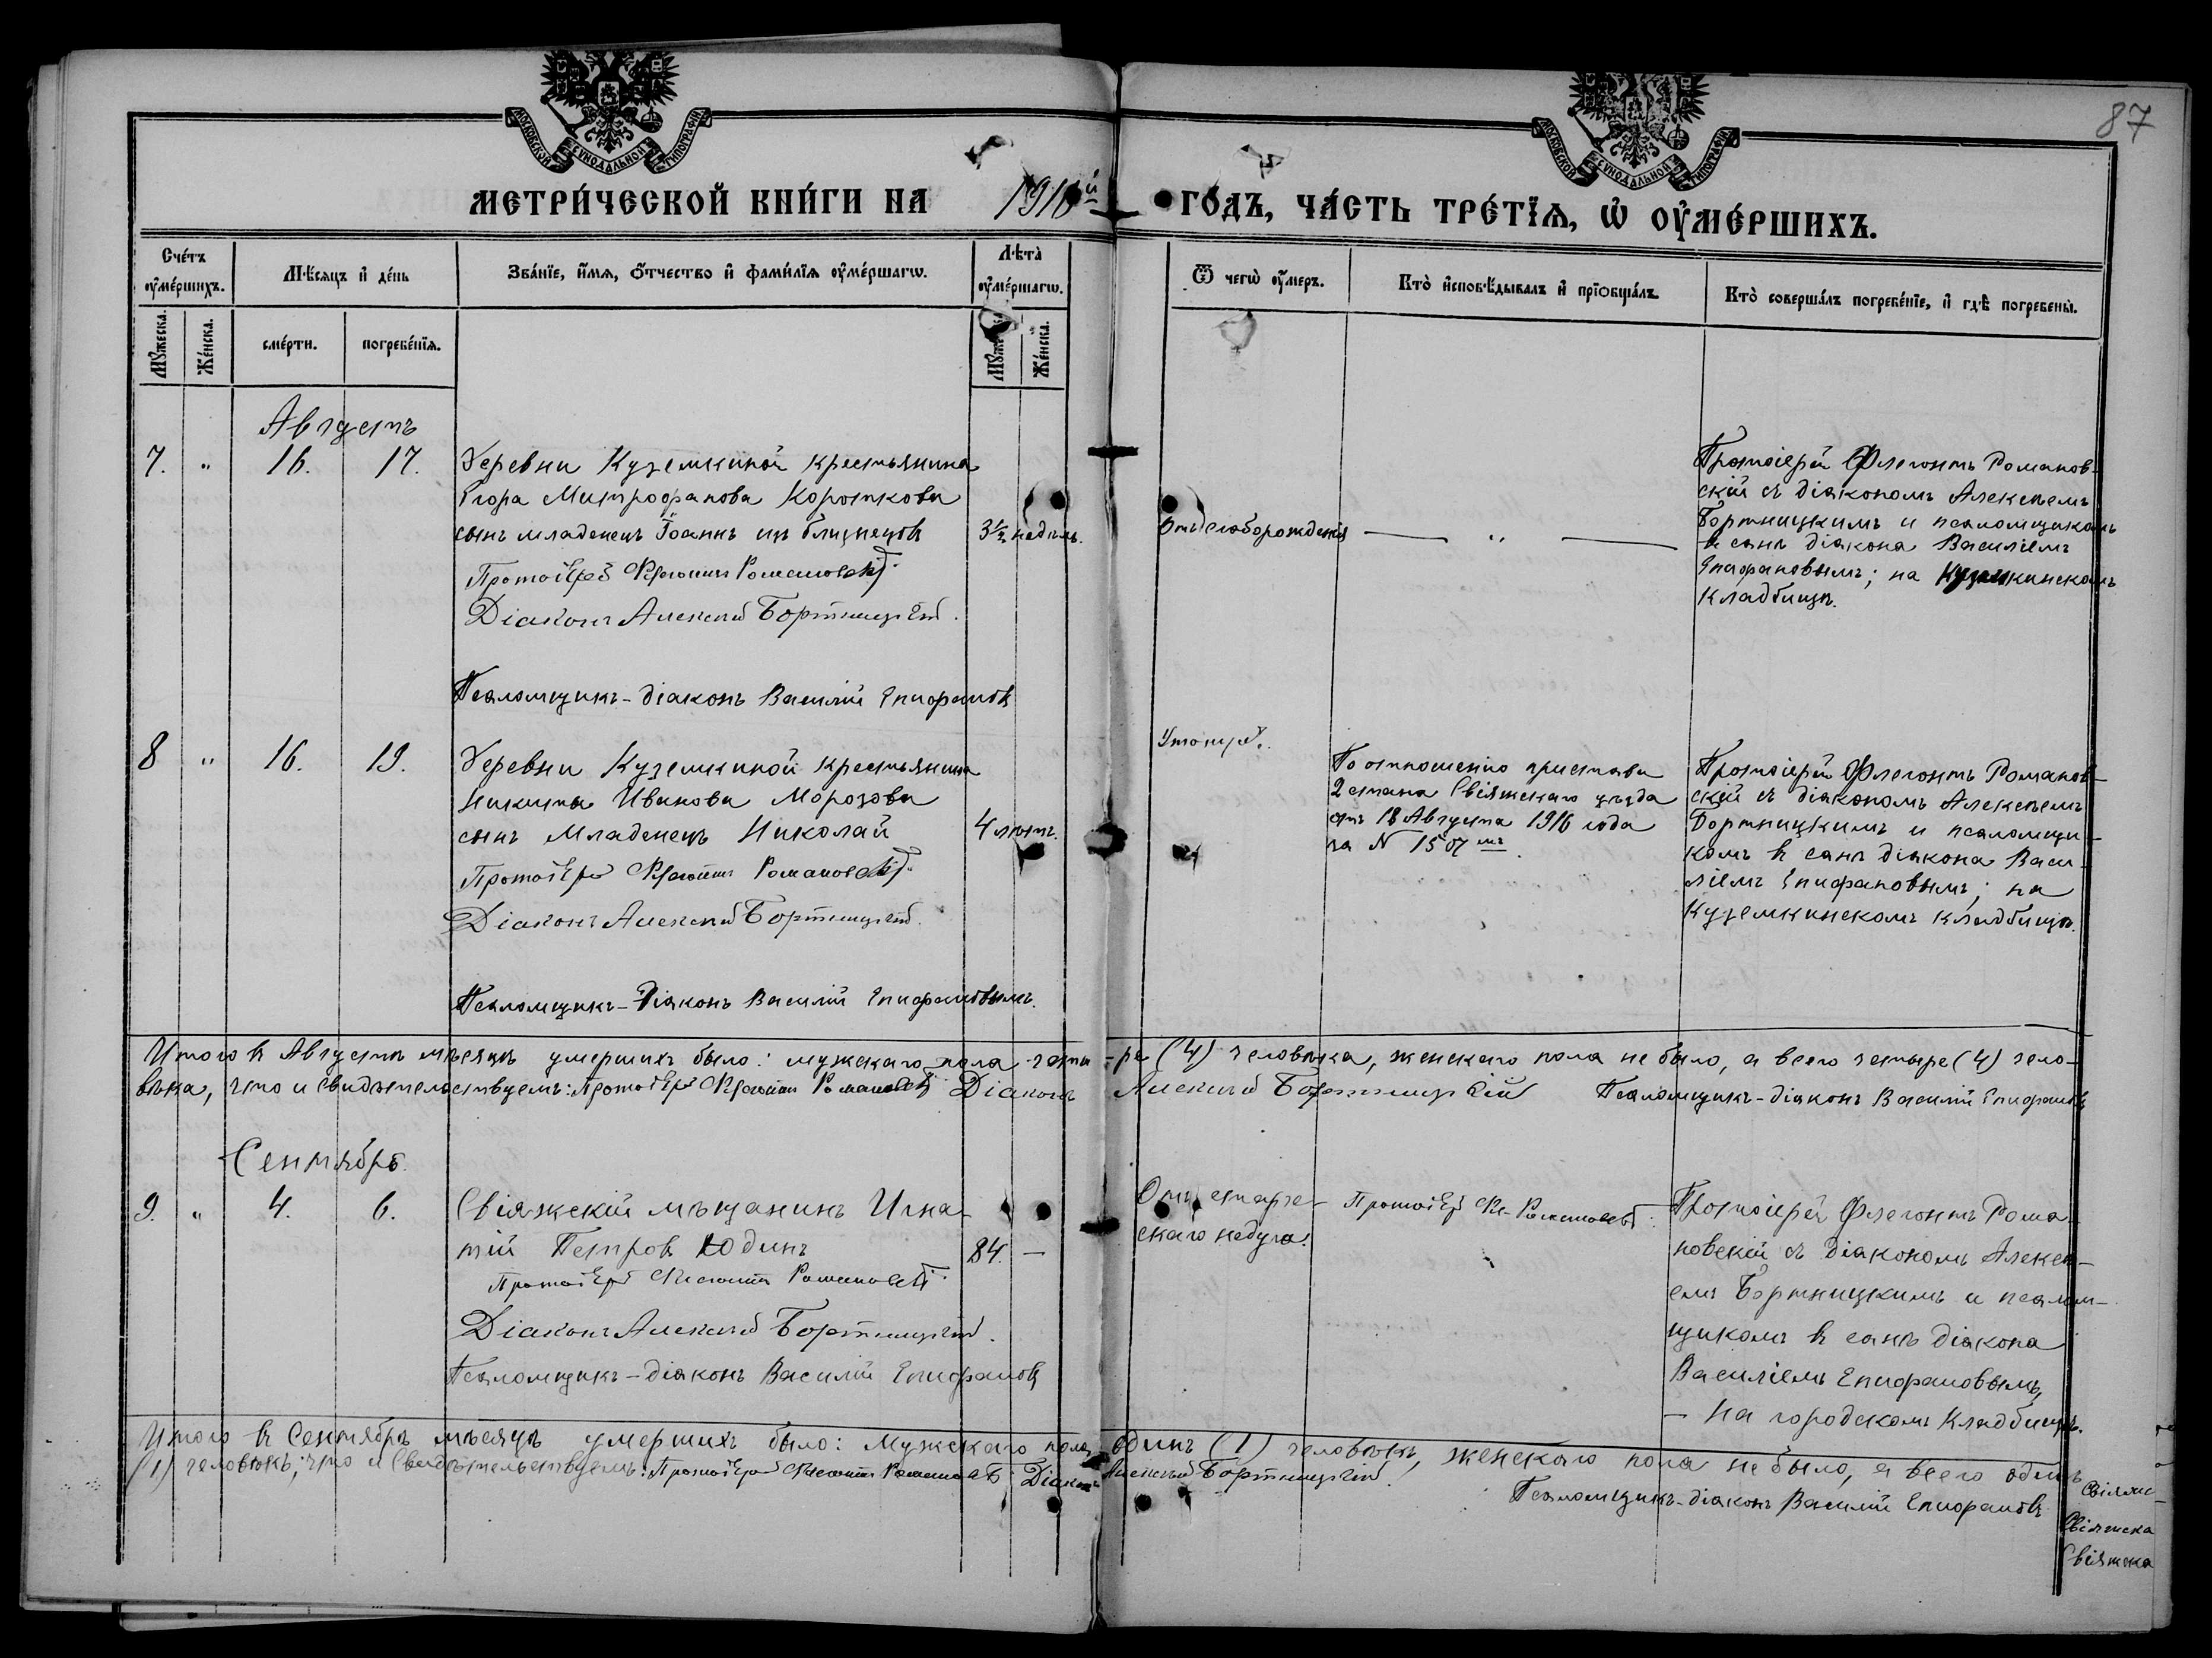 87
МОСКОВСКОЙ СѴНОДАЛЬНОЙ ТИПОГРАФІИ
МОСКОВСКОЙ СѴНОДАЛЬНОЙ ТИПОГРАФІИ
МЕТРИ́ЧЕСКОЙ КНИ́ГИ НА 1916й ГО́ДЪ, ЧА́СТЬ ТРЕ́ТІѦ, Ѡ҆ ОУ҆МЕ́РШИХЪ.
Сче́тъ оу҆ме́ршихъ.
Мѣ́сяцъ и҆ де́нь
Зва́нїе, и҆́мѧ, ѻ҆́тчество и҆ фами́лїѧ оу҆ме́ршагѡ.
Лѣта̀ оу҆ме́ршагѡ.
Ѿ чегѡ̀ оу҆́меръ.
Кто̀ и҆сповѣ́дывалъ и҆ прїѡбща́лъ.
Кто̀ соверша́лъ погребе́нїе, и҆ гдѣ̀ погребены̀.
Мꙋ́жеска.
Же́нска.
сме́рти.
погребе́нїѧ.
Мꙋ́жеска.
Же́нска.
Августъ
7. " 16. 17.
Деревни Куземкиной крестьянина
Егора Митрофанова Короткова
сынъ младенецъ Іоаннъ изъ близнецовъ
3½ недѣль.
Протоіерей Флегонтъ Романовскій
Діаконъ Алексій Бортницкій.
Псаломщикъ-діаконъ Василій Епифановъ
Отъ слаборожденія
— " —
Протоіерей Флегонтъ Романов-
скій съ діакономъ Алексѣемъ
Бортницкимъ и псаломщикомъ
въ санѣ діакона Василіемъ
Епифановымъ; на Куземкинскомъ
кладбищѣ.
8 " 16. 19.
Деревни Куземкиной крестьянина
Никиты Иванова Морозова
сынъ Младенецъ Николай
4 лѣтъ.
Протоіерей Флегонтъ Романовскій
Діаконъ Алексій Бортницкій.
Псаломщикъ-Діаконъ Василій Епифановымъ.
Утонулъ.
По отношенію пристава
2 стана Свіяжскаго уѣзда
отъ 18 Августа 1916 года
за N 1507мъ.
Протоіерей Флегонтъ Романов-
скій съ діакономъ Алексѣемъ
Бортницкимъ и псаломщи-
комъ въ санѣ діакона Васи-
ліемъ Епифановымъ; на
Куземкинскомъ кладбищѣ.
Итого въ Августѣ мѣсяцѣ умершихъ было: мужскаго пола четы-ре (4) человѣка, женскаго пола не было, а всего четыре (4) чело-
вѣка, что и свидѣтельствуемъ: Протоіерей Флегонтъ Романовскій Діаконъ Алексій Бортницкій Псаломщикъ-діаконъ Василій Епифановъ
Сентябрь.
9. " 4. 6.
Свіяжскій мѣщанинъ Игна-
тій Петровъ Юдинъ
84. —
Протоіерей Флегонтъ Романовскій.
Діаконъ Алексій Бортницкій.
Псаломщикъ-діаконъ Василій Епифановъ
Отъ старче-
скаго недуга.
Протоіерей Фл. Романовскій.
Протоіерей Флегонтъ Рома-
новскій съ діакономъ Алексѣ-
емъ Бортницкимъ и псалом-
щикомъ въ санѣ діакона
Василіемъ Епифановымъ,
— на городскомъ кладбищѣ.
Итого въ Сентябрѣ мѣсяцѣ умершихъ было: Мужскаго пола одинъ (1) человѣкъ, женскаго пола не было, а всего одинъ
(1) человѣкъ; что и свидѣтельствуемъ: Протоіерей Флегонтъ Романовскій Діаконъ Алексій Бортницкій.
Псаломщикъ-діаконъ Василій Епифановъ
Свіяжска
Свіяжска